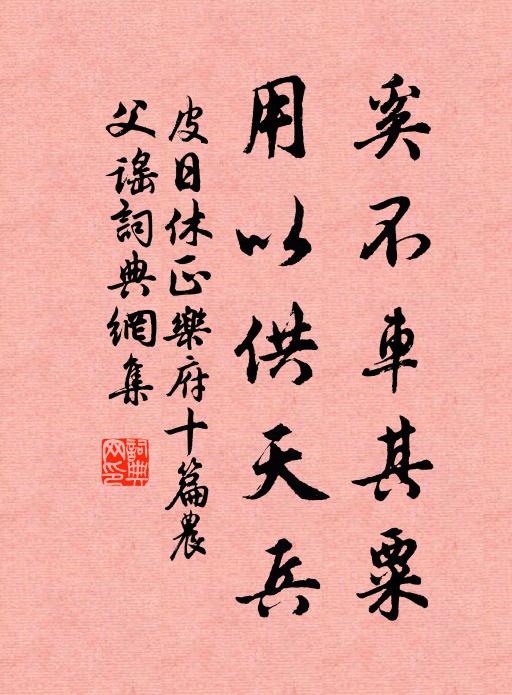 奚不車其粟
用以供天兵
皮日休正樂府十篇農
父謠詞典網集
詞典
网印